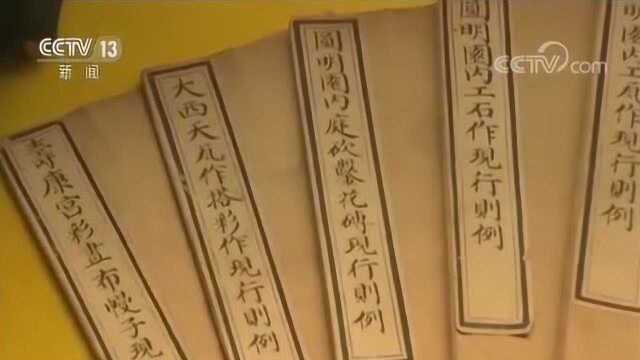 CCTV 13
新闻
CCTV.com
壽康宮彩畫布幔子現
大西天瓦作搭彩作現行則例
圓明園內庭砍鑿花磚現行則例
圓明園內工石作現行則例
內工瓦作現行則例